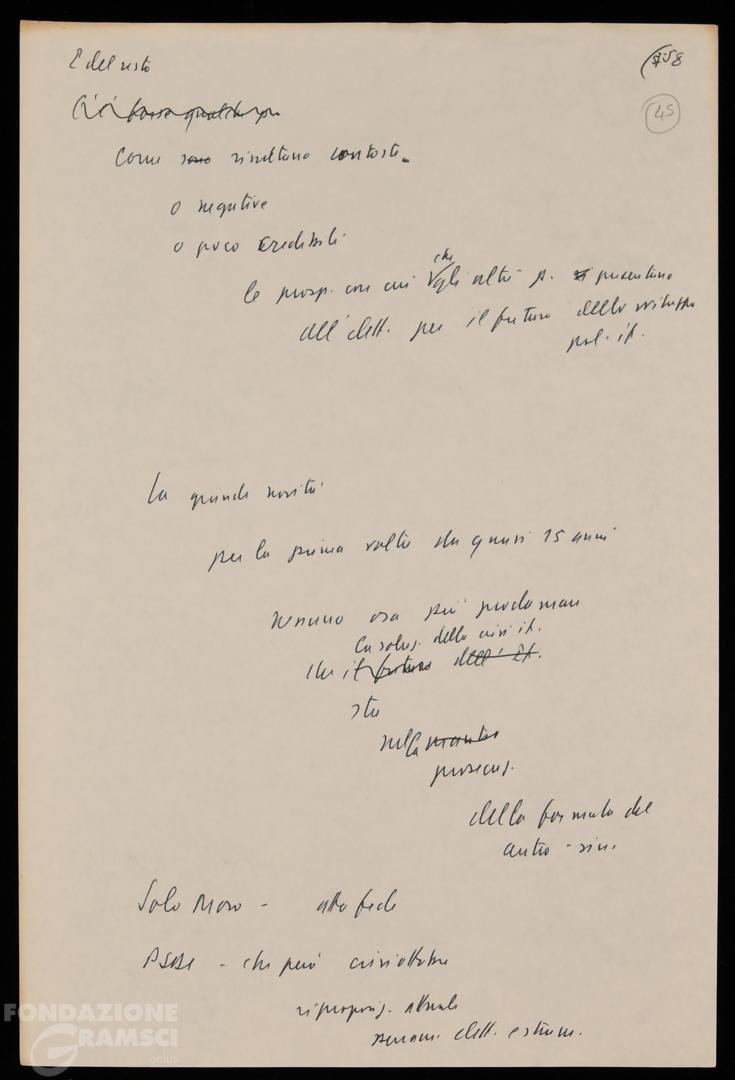 E del resto
758
45
C'è forse qualche più
Come sono risultano contorte
o negative
o poco credibili
le prosp. con cui che gli altri p. si presentano
all'elett. per il futuro dello sviluppo
pol. it.
La grande novità
per la prima volta da quasi 15 anni
nessuno osa più proclamare
la soluz. della crisi it.
che il futuro dell'It.
sta
nella
prosecuz.
della formula del
centro-sin.
Solo Moro - atto fede
PSDI - che però
riproposiz. attuale
elett. estrem.
FONDAZIONE
GRAMSCI
onlus